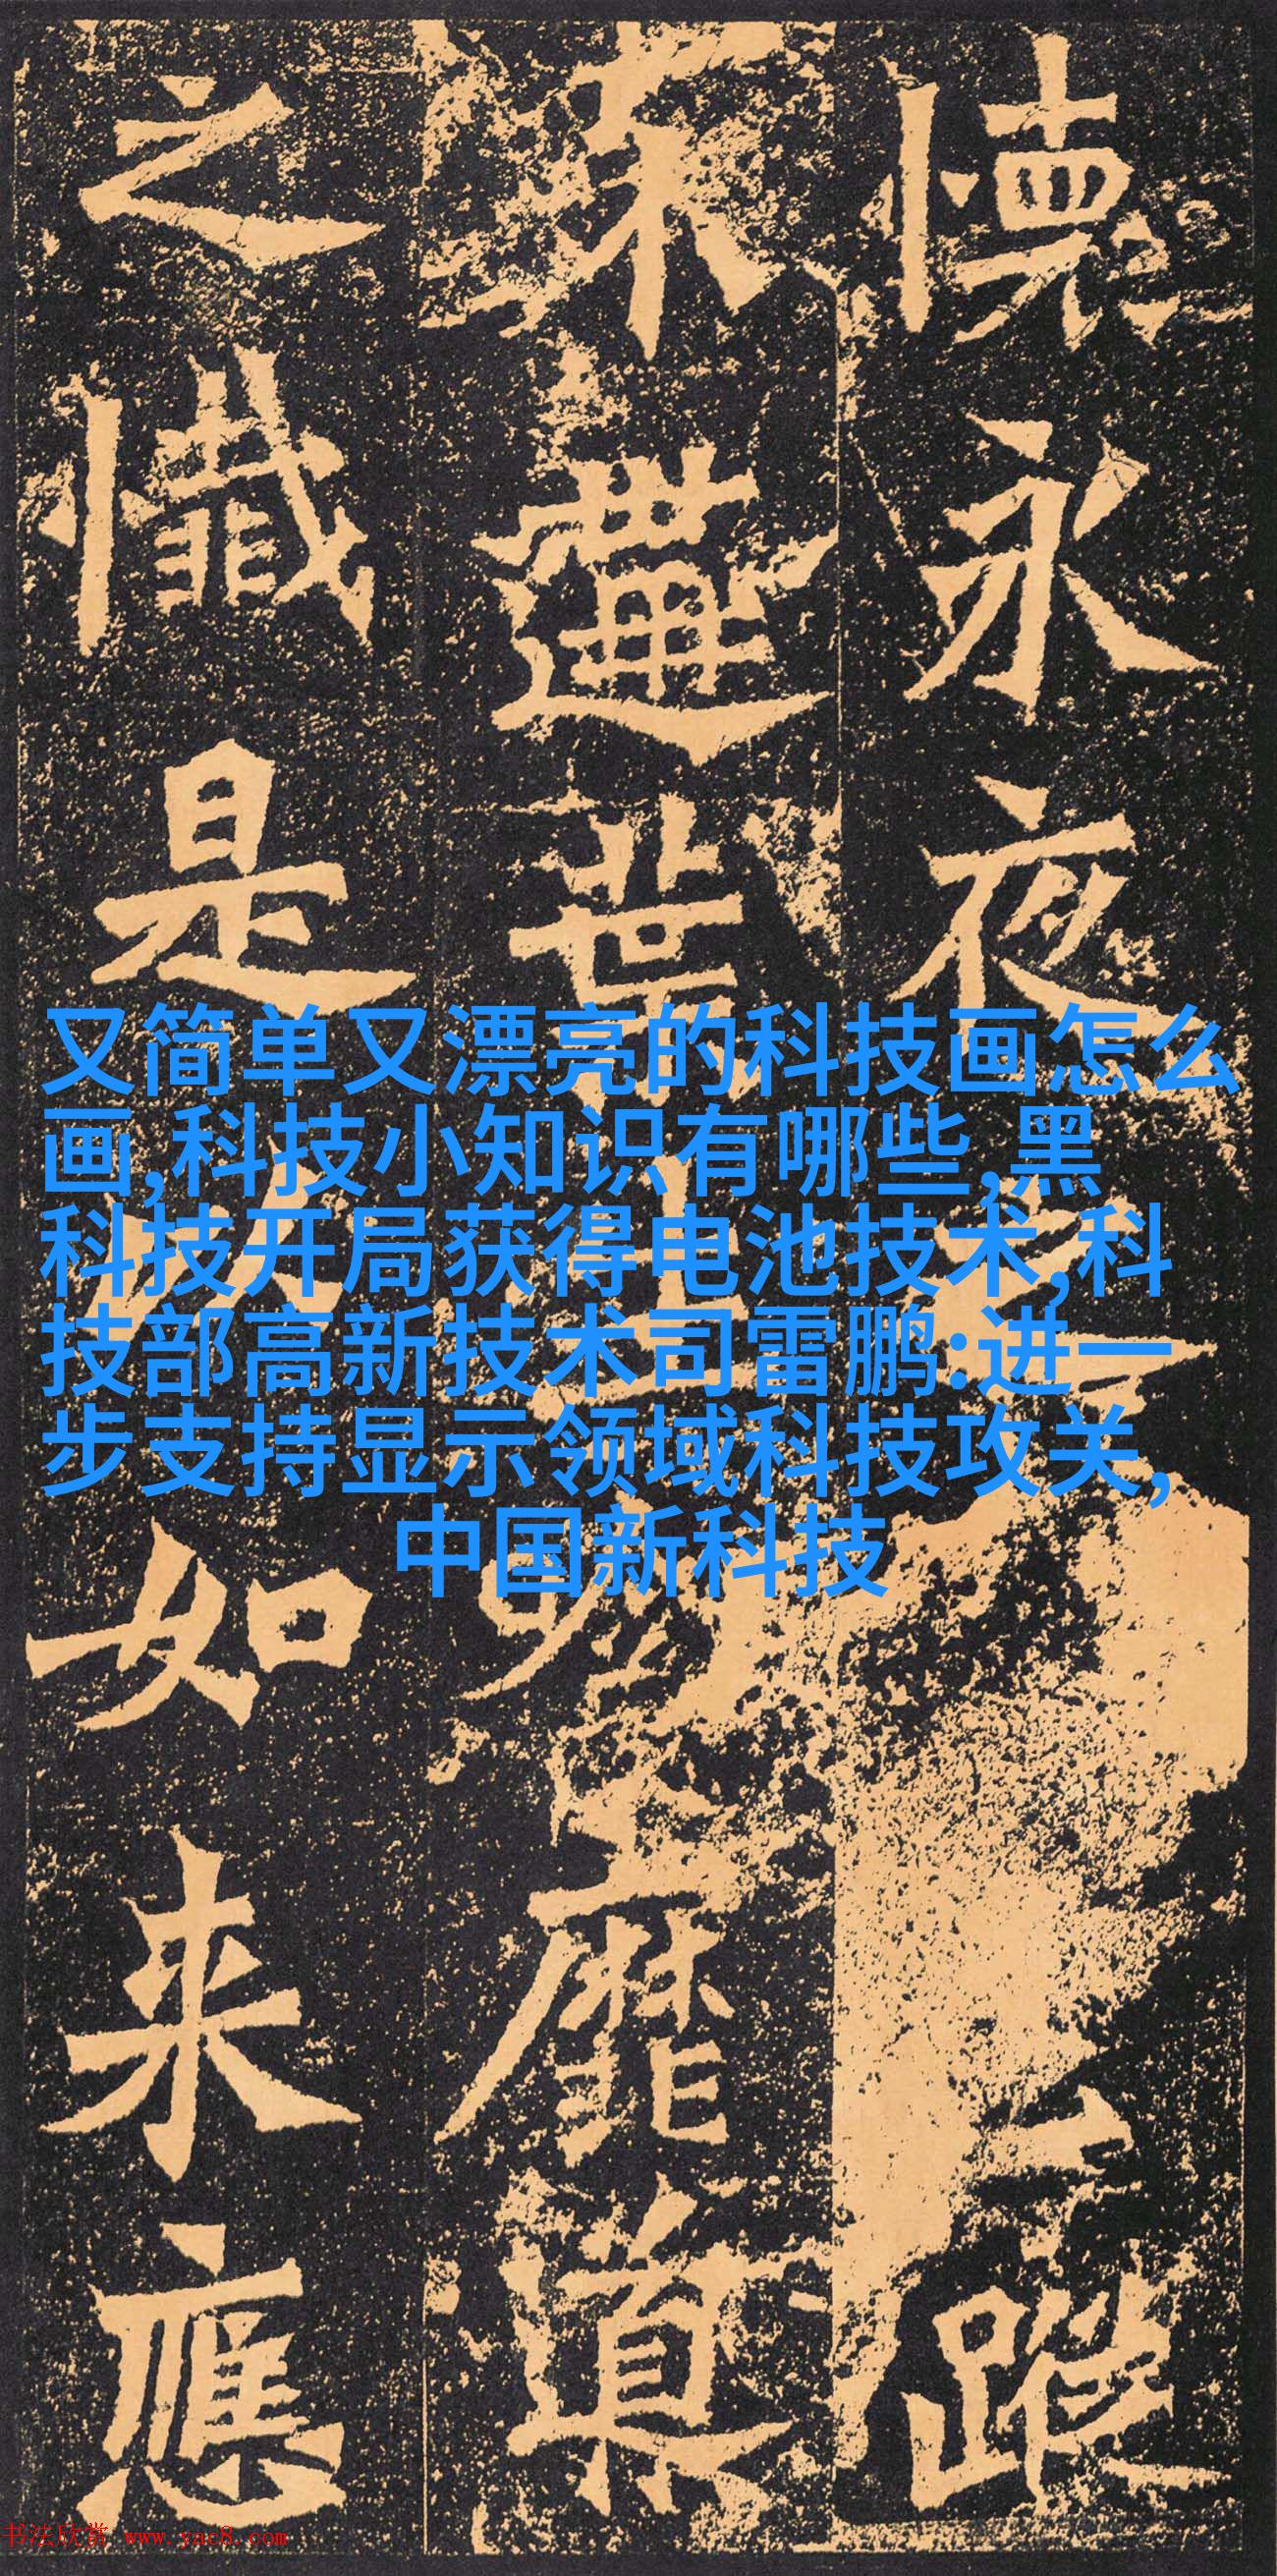 懐永夜
蹤
葉
靡
真
之懺是
如来應
又简单又漂亮的科技画怎么
画,科技小知识有哪些,黑
科技开局获得电池技术,科
技部高新技术司雷鹏:进一
步支持显示领域科技攻关,
中国新科技
书法欣赏 www.yac8.com